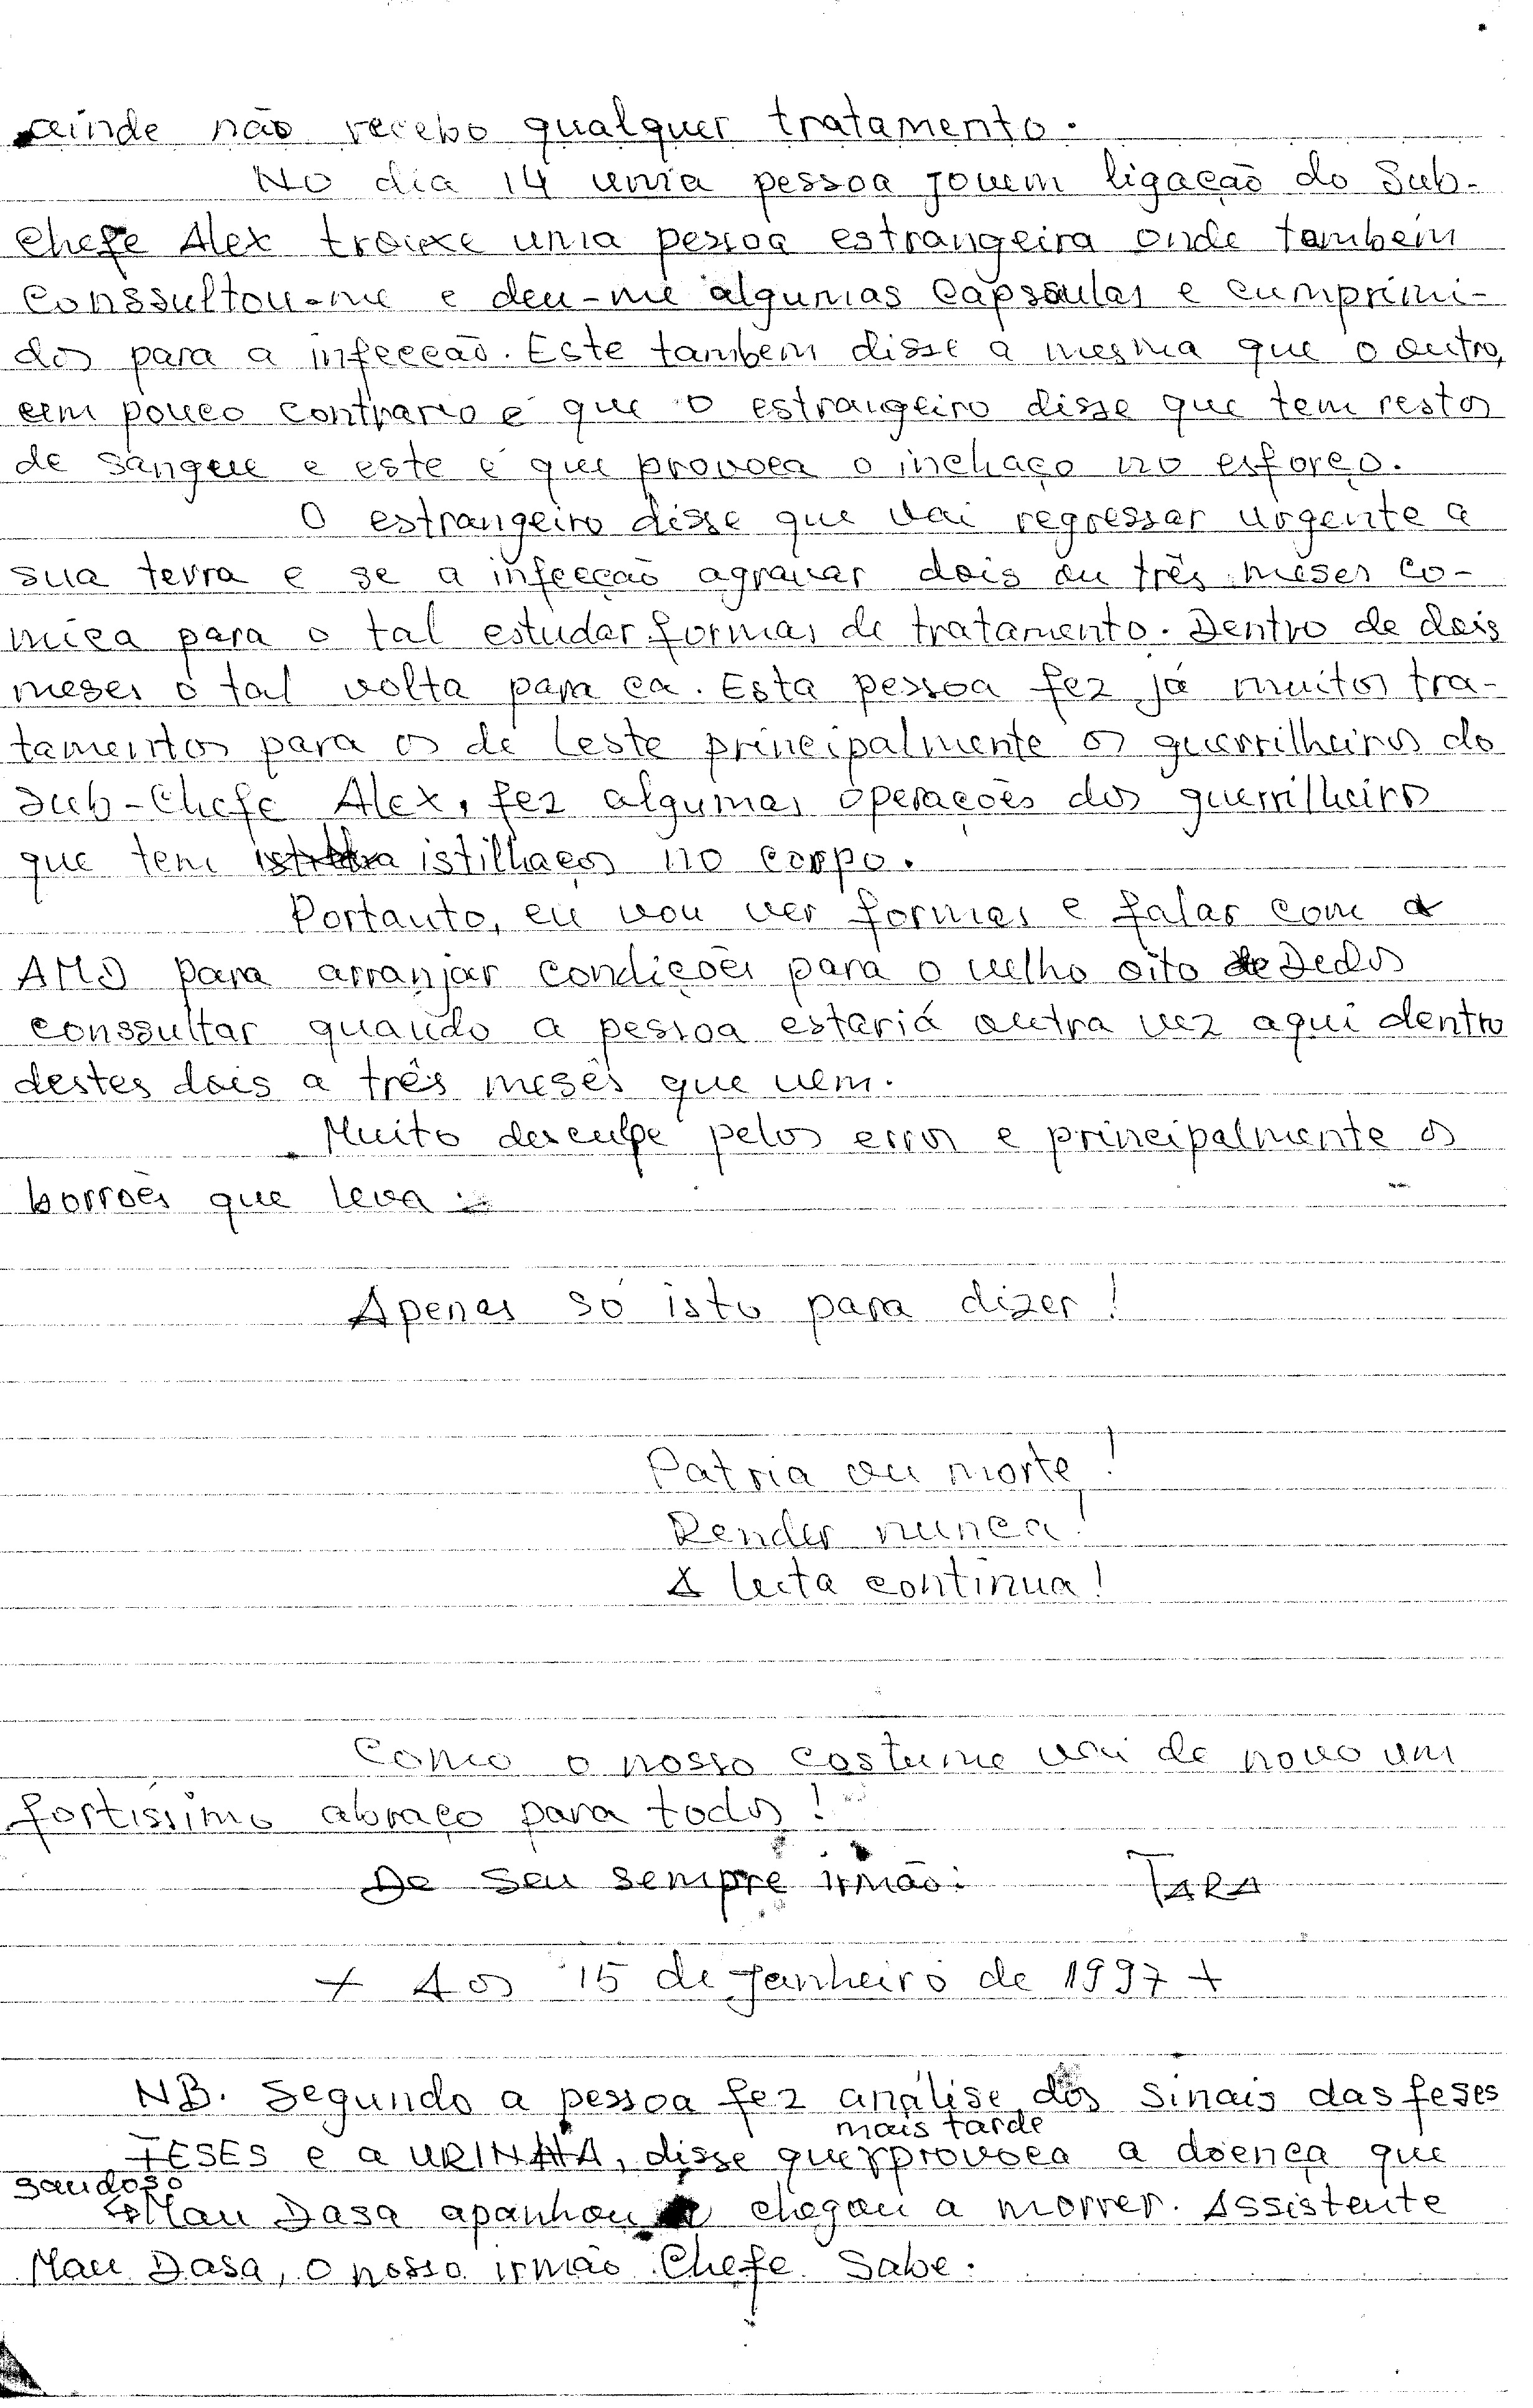 ainde não recebo qualquer tratamento.
No dia 14 uma pessoa jovem ligação do Sub-
Chefe Alex trouxe uma pessoa estrangeira onde tambem
conssultou-me e deu-me algumas capsulas e cumprimi-
dos para a infecção. Este tambem disse a mesma que o outro,
um pouco contrario é que o estrangeiro disse que tem restos
de sangue e este é que provoca o inchaço no esforço.
O estrangeiro disse que vai regressar urgente a
sua terra e se a infecção agravar dois ou três meses co-
mica para o tal estudar formas de tratamento. Dentro de dois
meses o tal volta para ca. Esta pessoa fez já muitos tra-
tamentos para os de leste principalmente os guerrilheiros do
Sub-Chefe Alex, fez algumas operações dos guerrilheiros
que tem istilhaços no corpo.
Portanto, eu vou ver formas e falar com a
AMD para arranjar condições para o velho oito Dedos
conssultar quando a pessoa estariá outra vez aqui dentro
destes dois a três mesês que vem.
Muito desculpe pelos erros e principalmente os
borroẽs que leva:
Apenas só isto para dizer!
Patria ou morte!
Render nunca!
A luta continua!
Como o nosso costume vai de novo um
fortissimo abraço para todos!
De seu sempre irmão: TARA
+ Aos 15 de Janheiro de 1997 +
NB. Segundo a pessoa fez análise dos sinais das feses
FESES e a URINHA, disse que mais tarde provoca a doença que
saudoso Mau Dasa apanhou chegou a morrer. Assistente
Mau Dasa, o nosso irmão Chefe Sabe.